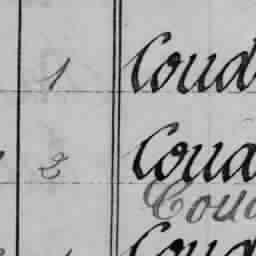 1 Coud
2 Coud
Coud
Coud